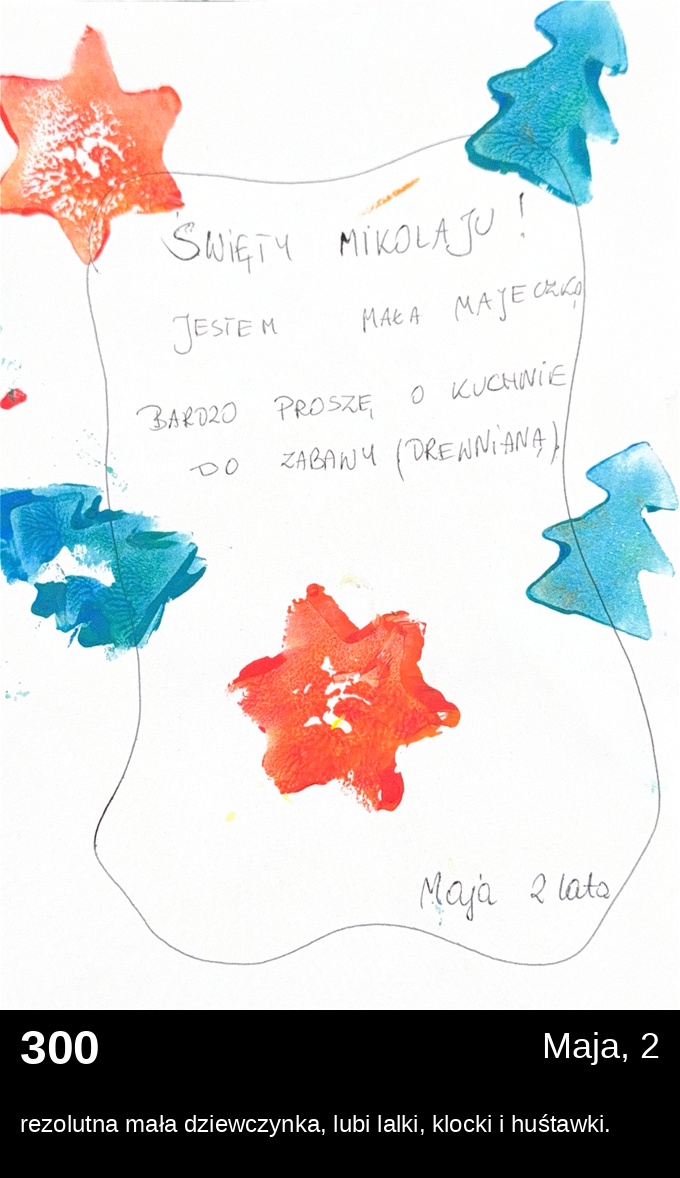 ŚWIĘTY MIKOŁAJU !
JESTEM MAŁA MAJECZKĄ
BARDZO PROSZĘ O KUCHNIE
DO ZABAWY (DREWNIANĄ).
Maja 2 lata
300
Maja, 2
rezolutna mała dziewczynka, lubi lalki, klocki i huśtawki.